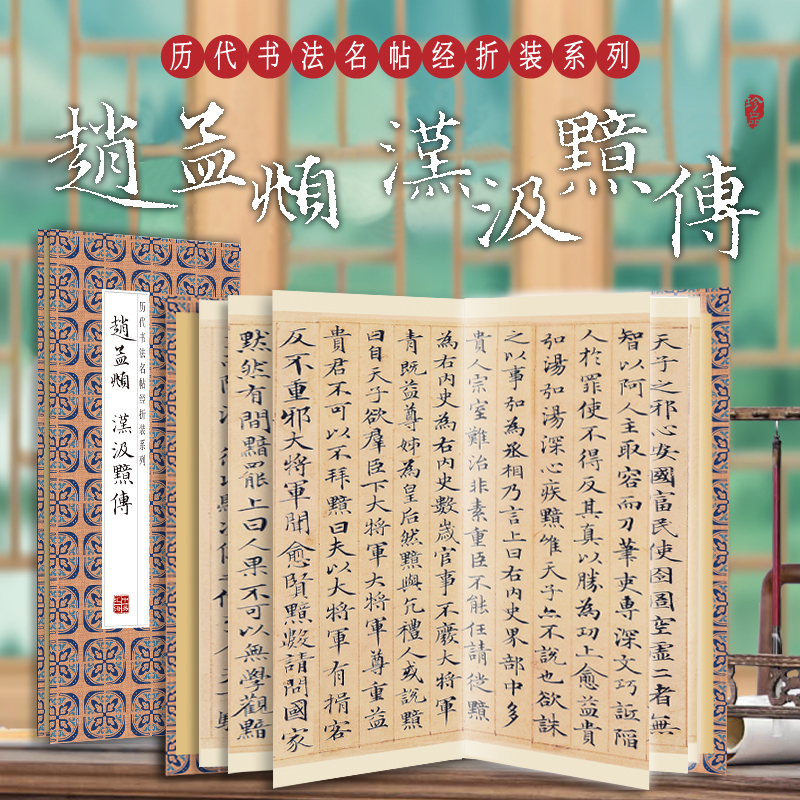 历代书法名帖经折装系列
趙孟頫 漢汲黯傳
历代书法名帖经折装系列
趙孟頫 漢汲黯傳
天子之邪心安國富民使囹圄空虛二者無
智以阿人主取容而刀筆吏專深文巧詆陷
人於罪使不得反其真以勝為功上愈益貴
弘湯弘湯深心疾黯雖天子亦不說也欲誅
之以事弘為丞相乃言上曰右內史界部中多
貴人宗室難治非素重臣不能任請徙黯
為右內史為右內史數歲官事不廢大將軍
青既益尊姊為皇后然黯與亢禮人或說黯
曰自天子欲羣臣下大將軍大將軍尊重益
貴君不可以不拜黯曰夫以大將軍有揖客
反不重邪大將軍聞愈賢黯數請問國家
默然有間黯罷上曰人果不可以無學觀黯